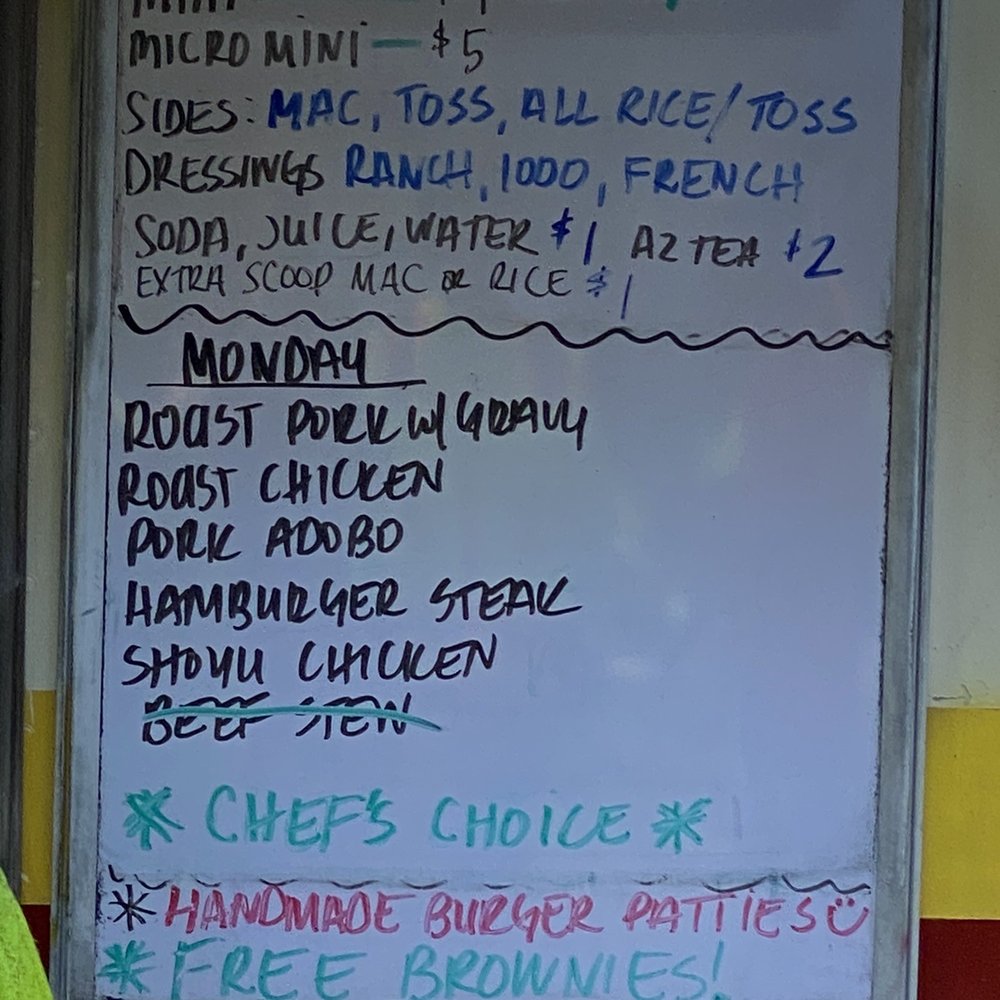 MICRO MINI — $5
SIDES: MAC, TOSS, ALL RICE/TOSS
DRESSINGS RANCH, 1000, FRENCH
SODA, JUICE, WATER $1 AZ TEA $2
EXTRA SCOOP MAC OR RICE $1
MONDAY
ROAST PORK W/ GRAVY
ROAST CHICKEN
PORK ADOBO
HAMBURGER STEAK
SHOYU CHICKEN
BEEF STEW
* CHEF'S CHOICE *
* HANDMADE BURGER PATTIES
* FREE BROWNIES!